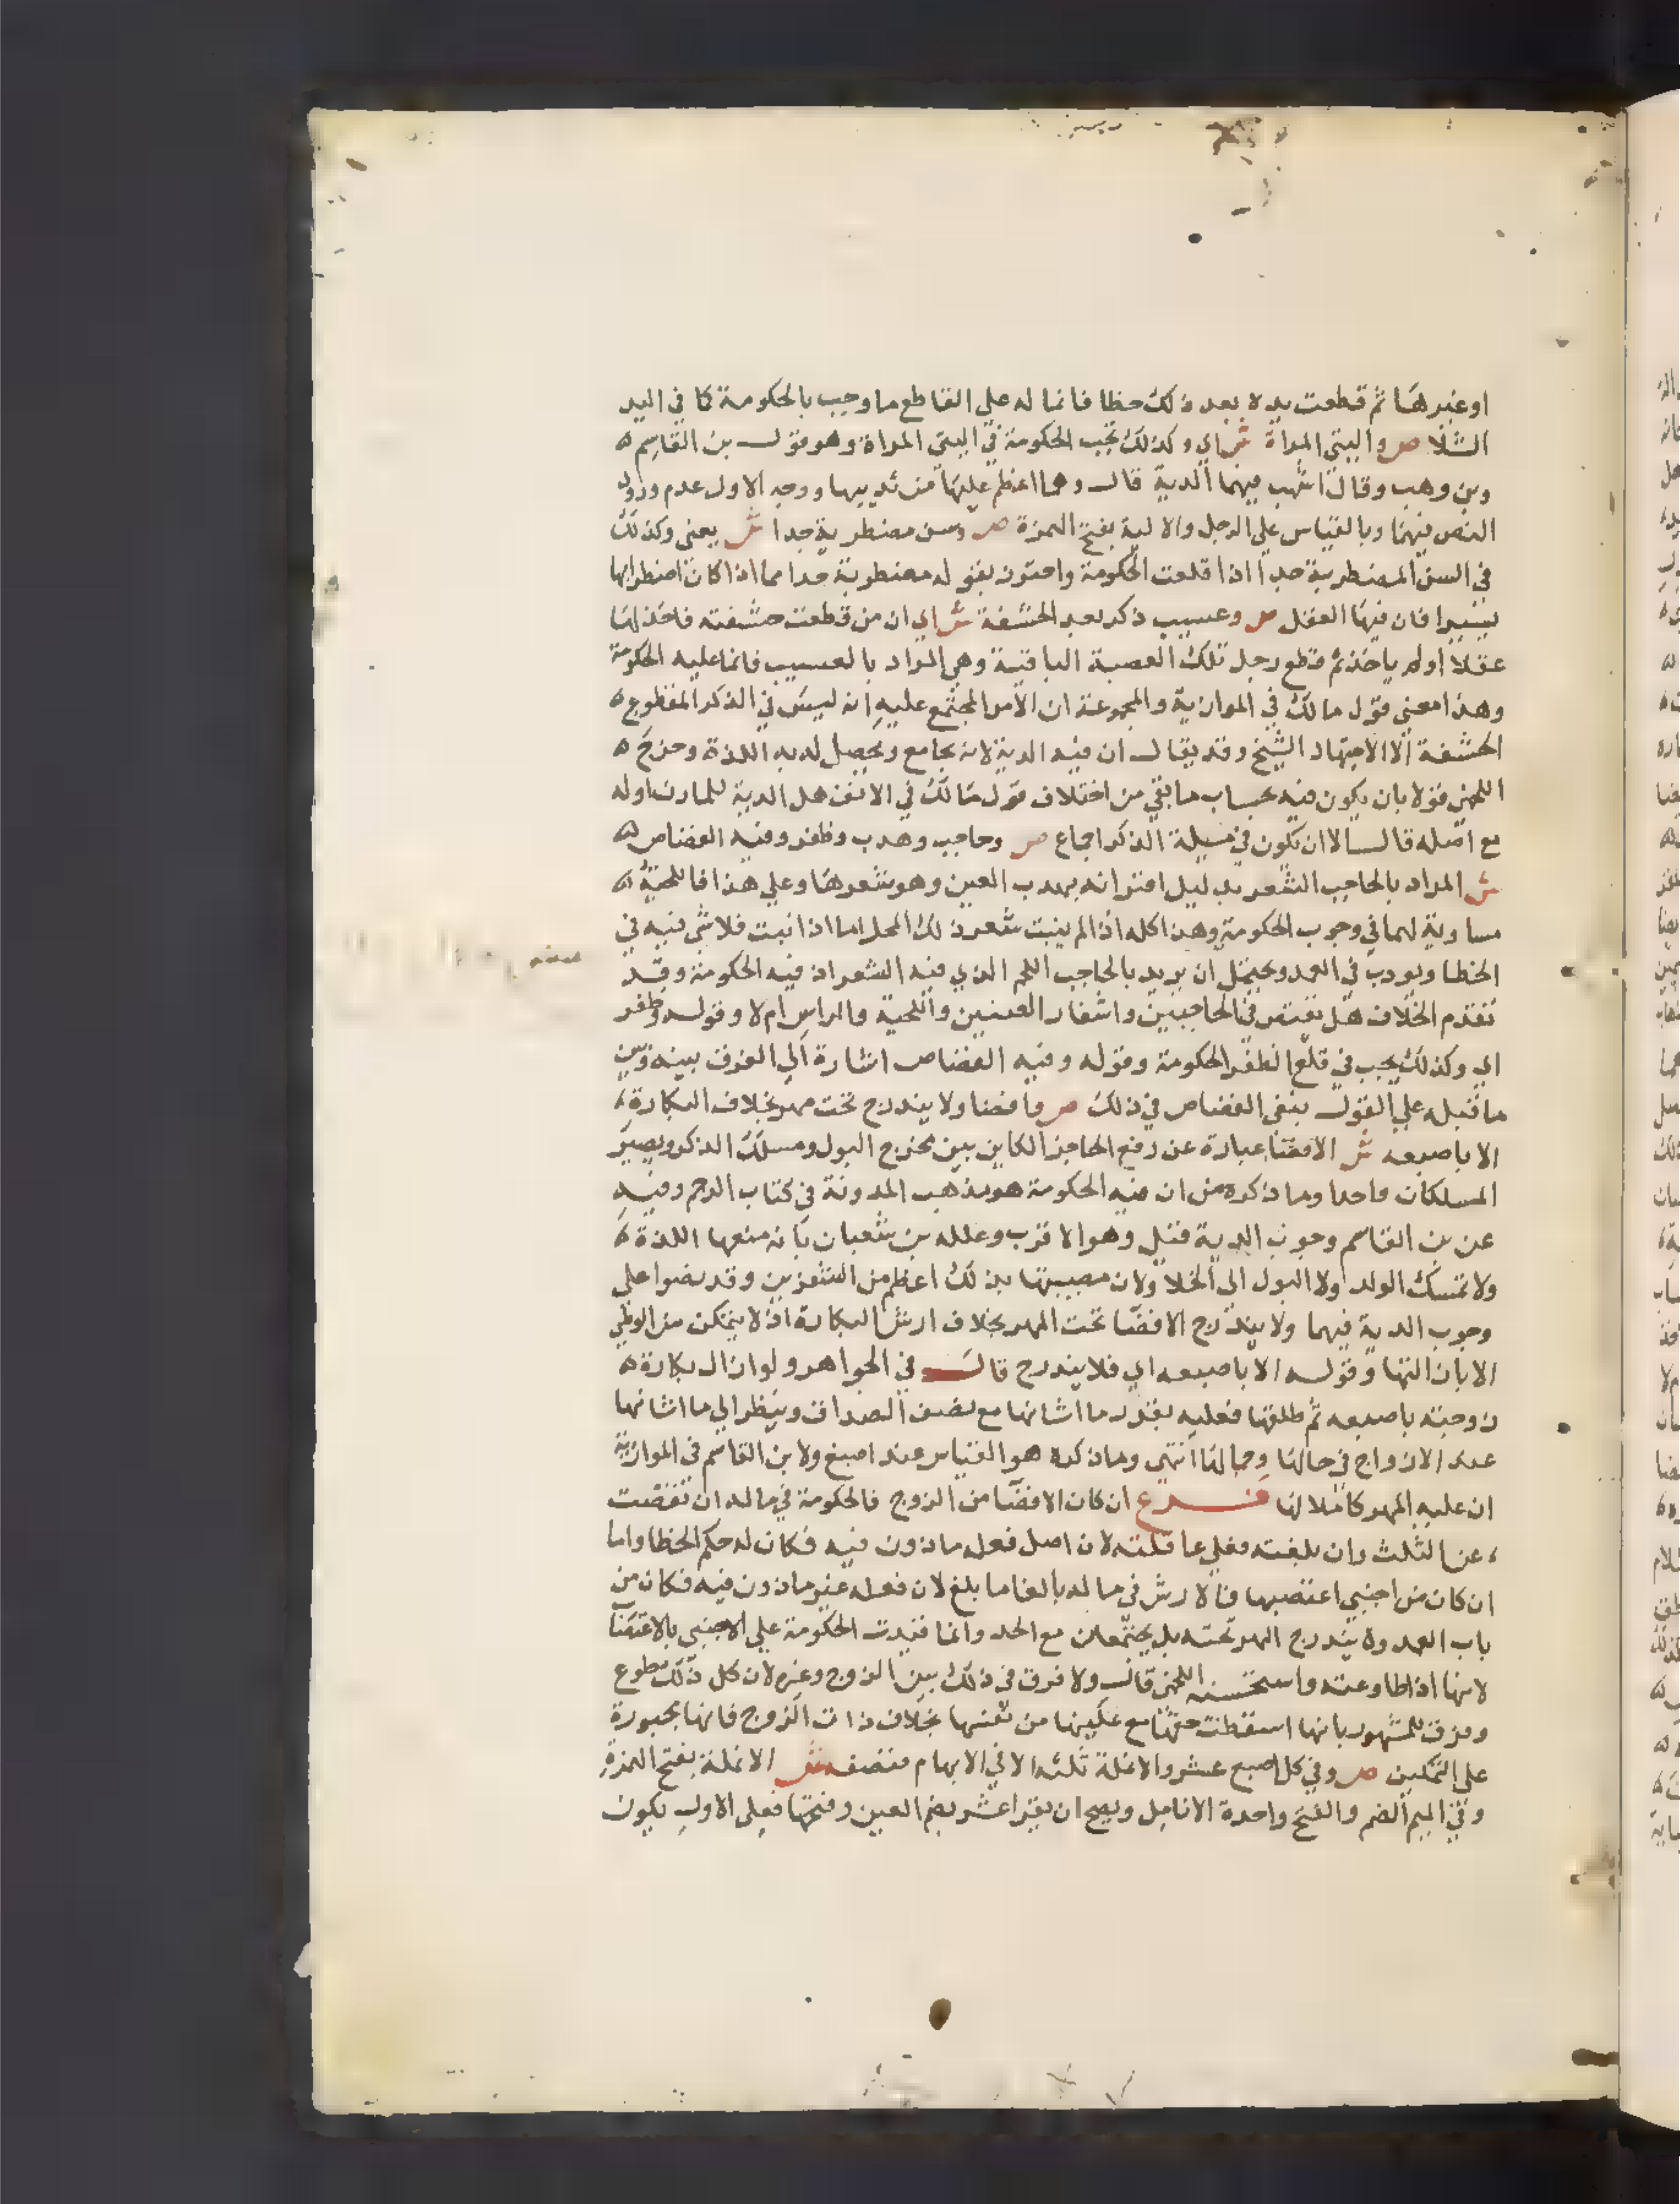 او غيرها ثم قطعت يده بعد ذلك خطا فانما له علي القاطع ما وجب بالحكومة كما في اليد
الشلا ص واليتي المراة ش اي وكذلك تجب الحكومة في اليتي المراة وهو قول بن القاسم
وبن وهب وقال اشهب فيهما الدية قال وهما اعظم عليها من ثدييها ووجه الاول عدم ورود
النص فيهما وبالقياس علي الرجل والالية بفتح الهمزة ص وسن مضطربة جدا ش يعني وكذلك
في السن المضطربة جدا اذا قلعت الحكومة واحترز بقوله مضطربة جدا مما اذا كان اضطرابها
يسيرا فان فيها العقل ص وعسيب ذكر بعد الحشفة ش اي ان من قطعت حشفته فاخذ لها
عقلا اولم ياخذ ثم قطع رجل تلك العصبة الباقية وهي المراد بالعسيب فانما عليه الحكومة
وهذا معني قول مالك في الموازية والمجموعة ان الامر المجتمع عليه انه ليس في الذكر المقطوع
الحشفة الا الاجتهاد الشيخ وقد يقال ان فيه الدية لانه يجامع ويحصل له به اللذة وخرج
اللخمي قولا بان يكون فيه بحساب ما بقي من اختلاف قول مالك في الانف هل الدية للمارن اوله
مع اصله قال الا ان يكون في مسيلة الذكر اجماع ص وحاجب وهدب وظفر وفيه القصاص
ش المراد بالحاجب الشعر بدليل اقترانه بهدب العين وهو شعرها وعلي هذا فاللحية
مساوية لهما في وجوب الحكومة وهذا كله اذا لم ينبت شعر ذلك المحل اما اذا نبت فلا شي فيه في
الخطا ويودب في العمد ويحتمل ان يريد بالحاجب اللحم الذي فيه الشعر اذ فيه الحكومة وقد
تقدم الخلاف هل يقتص في الحاجبين واشفار العينين واللحية والراس ام لا وقوله وظفر
اي وكذلك يجب في قلع الظفر الحكومة وقوله وفيه القصاص اشارة الي الفرق بينه وبين
ما قبله علي القول بنفي القصاص في ذلك ص وافضا ولا يندرج تحت مهر بخلاف البكارة
الا باصبعه ش الافضا عبارة عن رفع الحاجز الكاين بين مخرج البول ومسلك الذكر ويصير
المسلكان واحدا وما ذكره من ان فيه الحكومة هو مذهب المدونة في كتاب الرجم وفيه
عن بن القاسم وجوب الدية قيل وهو الاقرب وعلله بن شعبان بانه منعها اللذة
ولا تمسك الولد ولا البول الي الخلا ولان مصيبتها بذلك اعظم من الشفرين وقد نصوا علي
وجوب الدية فيهما ولا يندرج الافضا تحت المهر بخلاف ارش البكارة اذ لا يتمكن من الوطي
الا بازالتها وقوله الا باصبعه اي فلا يندرج قال في الجواهر ولو ازال بكارة
زوجته باصبعه ثم طلقها فعليه بقدر ما اشانها مع نصف الصداق وينظر الي ما اشانها
عند الازواج في حالها وجمالها انتهي وما ذكره هو القياس عند اصبغ ولابن القاسم في الموازية
ان عليه المهر كاملا لها فرع ان كان الافضا من الزوج فالحكومة في ماله ان نقصت
عن الثلث وان بلغته فعلي عاقلته لان اصل فعله ماذون فيه فكان له حكم الخطا واما
ان كان من اجنبي اغتصبها فالارش في ماله بالغا ما بلغ لان فعله غير ماذون فيه فكان من
باب العمد ولا يندرج المهر تحته بل يجتمعان مع الحد وانما قيدت الحكومة علي الاجنبي بالاغتصاب
لانها اذا طاوعته واستحسنه اللخمي قال ولا فرق في ذلك بين الزوج وغيره لان كل ذلك بطوع
وفرق للمشهور بانها اسقطت حقها مع تمكينها من نفسها بخلاف ذات الزوج فانها مجبورة
علي التمكين ص وفي كل اصبع عشر والانملة ثلثه الا في الابهام فنصفه ش الانملة بفتح الهمزة
وفي الميم الضم والفتح واحدة الانامل ويصح ان يقرا عشر بضم العين وفتحها فعلي الاول يكون